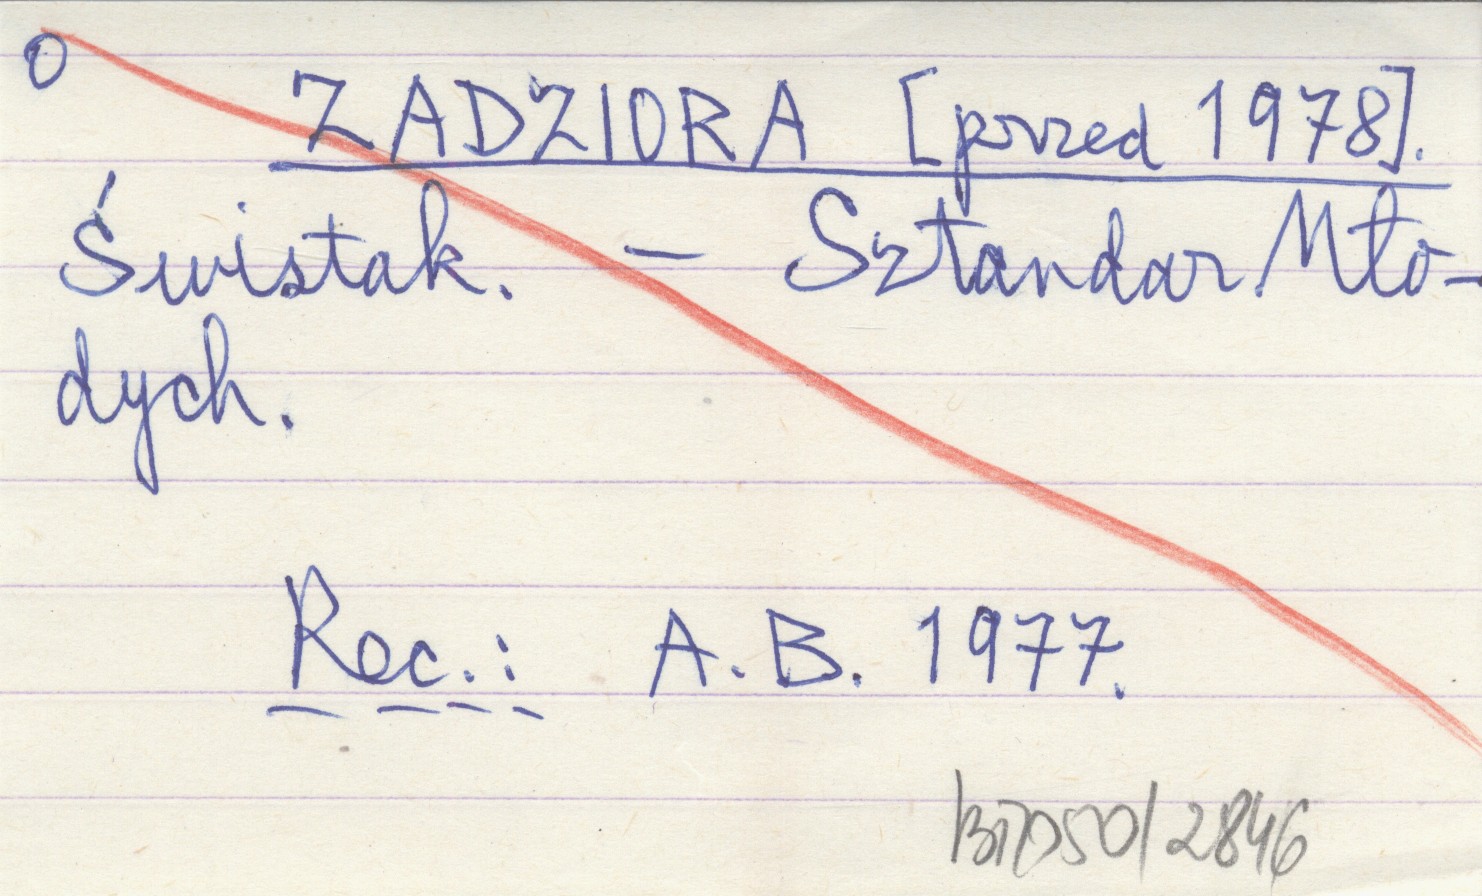 O
ZADZIORA [przed 1978].
Świstak. — Sztandar Mło-
dych.
Rec.: A.B. 1977.
2846